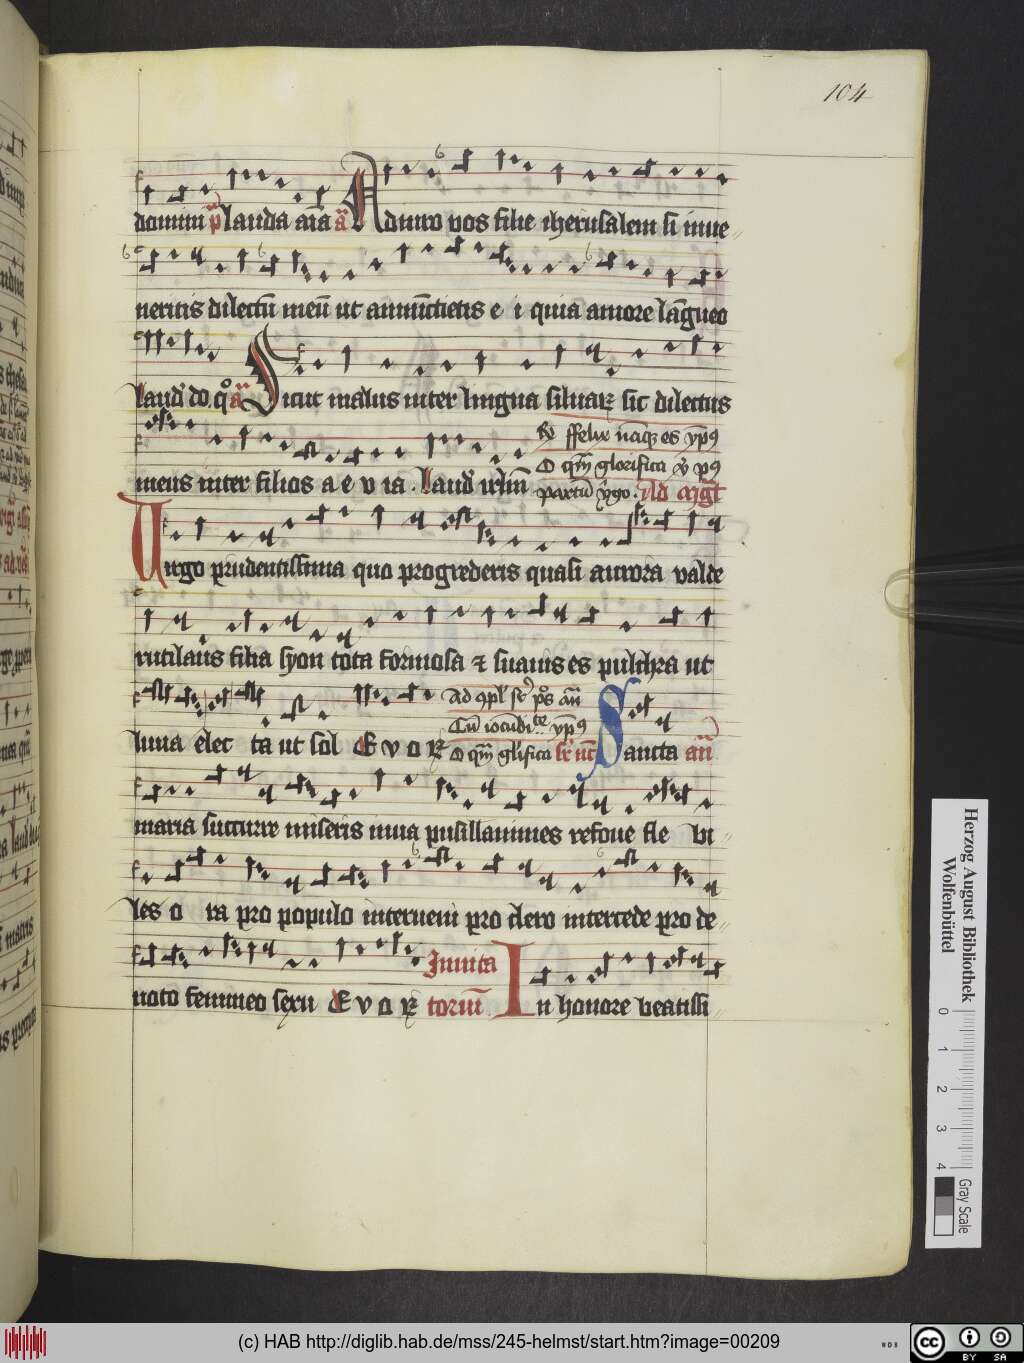 104
domini p̄ lauda aīa ā Adiuro vos filie iherusalem si inue
neritis dilectū meū ut annūctietis e i quia amore lāgueo
laud' do q° ā Sicut malus inter lingua siluaꝝ sic dilectus
meus inter filios a e v ia . Laud' irlm̄
℟ ffelix
O qm̄ glorifica
partū v̾go . Ad
Uirgo prudentissima quo progrederis quasi aurora valde
rutilans filia syon tota formosa ⁊ suauis es pulchra ut
luna elec ta ut sol E v o ꝝ
Ad ꝯpl'
Cū iocūdi.te
O qm̄ gl'ifica
Sancta an̄
maria succurre miseris iuua pusillanimes refoue fle bi
les o ra pro populo interueni pro clero intercede pro de
uoto femineo sexu E v o ꝝ Inuita
toriū In honore beatissi
Herzog August Bibliothek
Wolfenbüttel
0 1 2 3 4
Gray Scale
(c) HAB http://diglib.hab.de/mss/245-helmst/start.htm?image=00209
WDB
cc BY SA